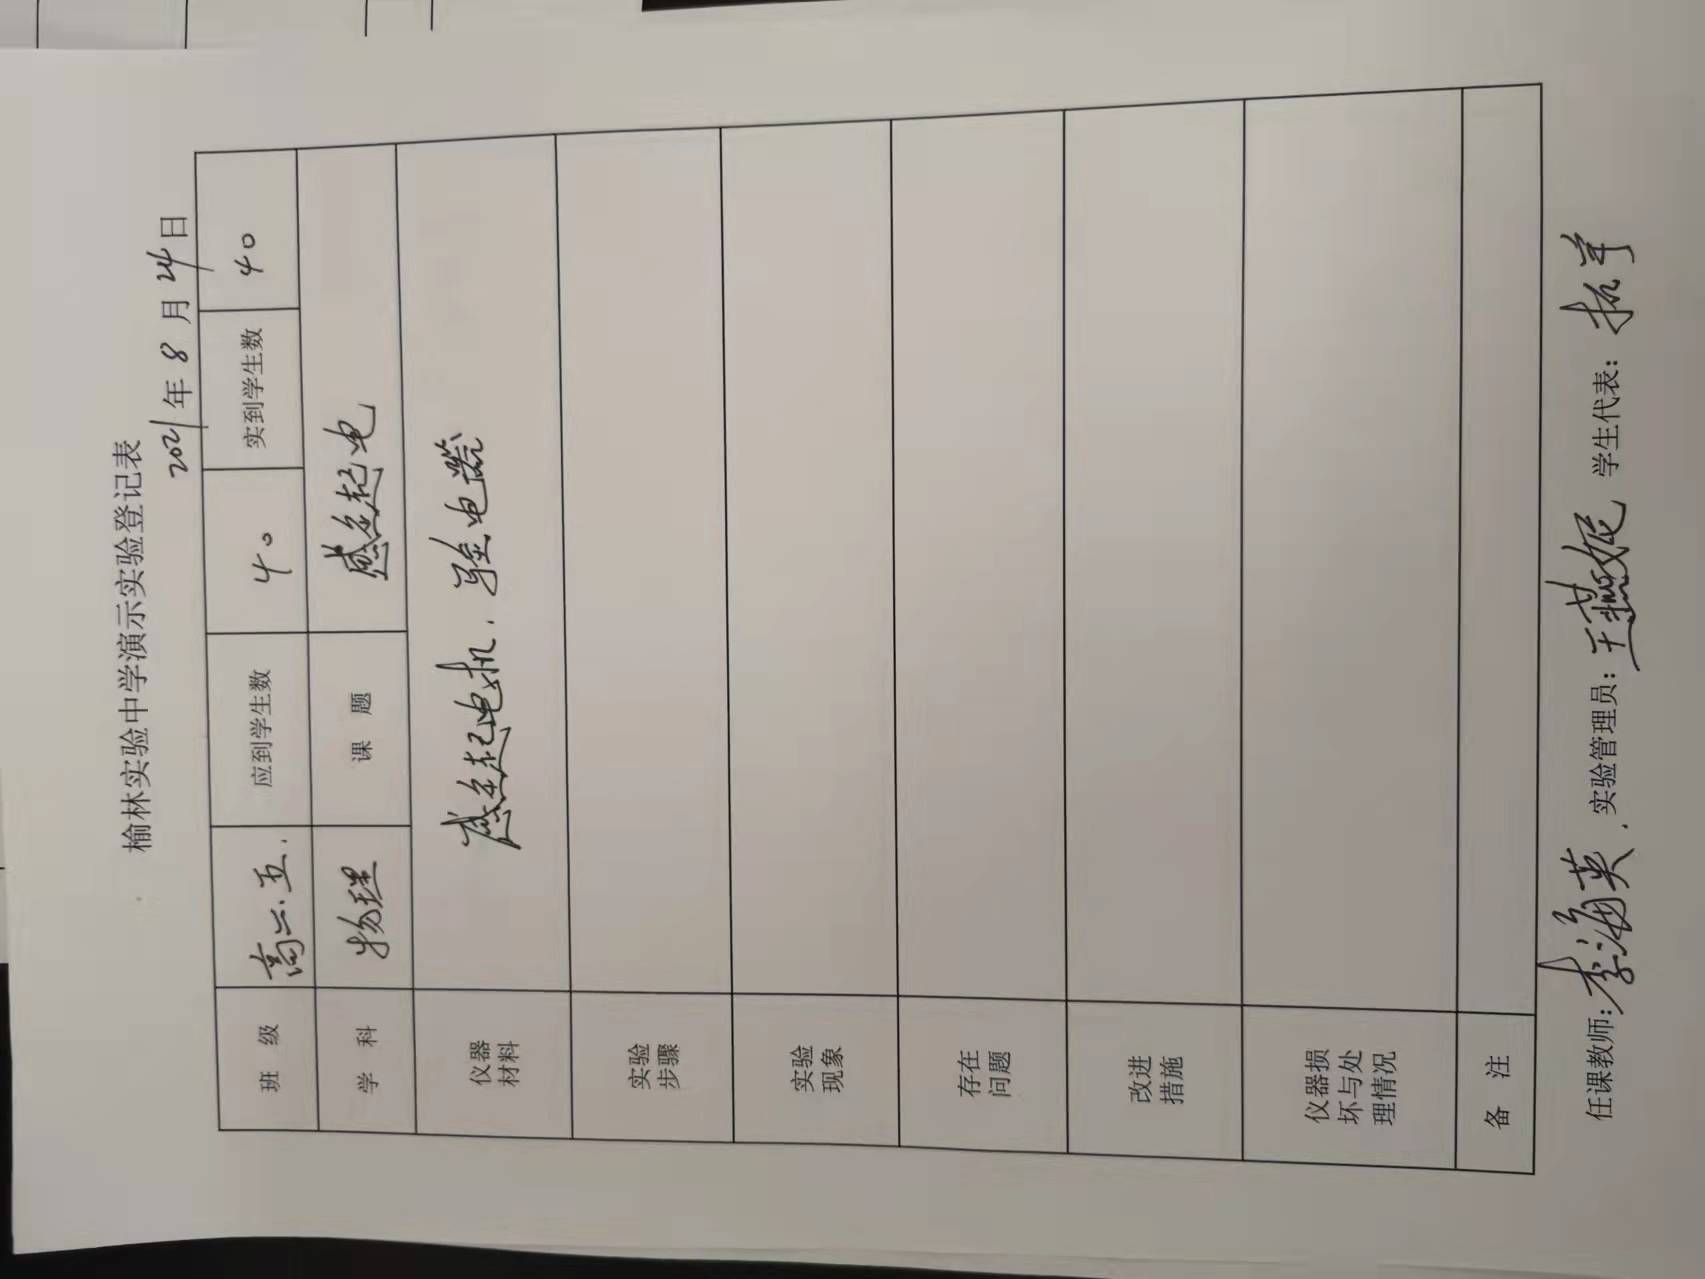 榆林实验中学演示实验登记表
2021年8月24日
班 级 高二.五. 应到学生数 40 实到学生数 40
学 科 物理 课 题 感应起电
仪器
材料
感应起电机. 验电器
实验
步骤
实验
现象
存在
问题
改进
措施
仪器损
坏与处
理情况
备 注
任课教师: 李海英. 实验管理员: 王燕妮 学生代表: